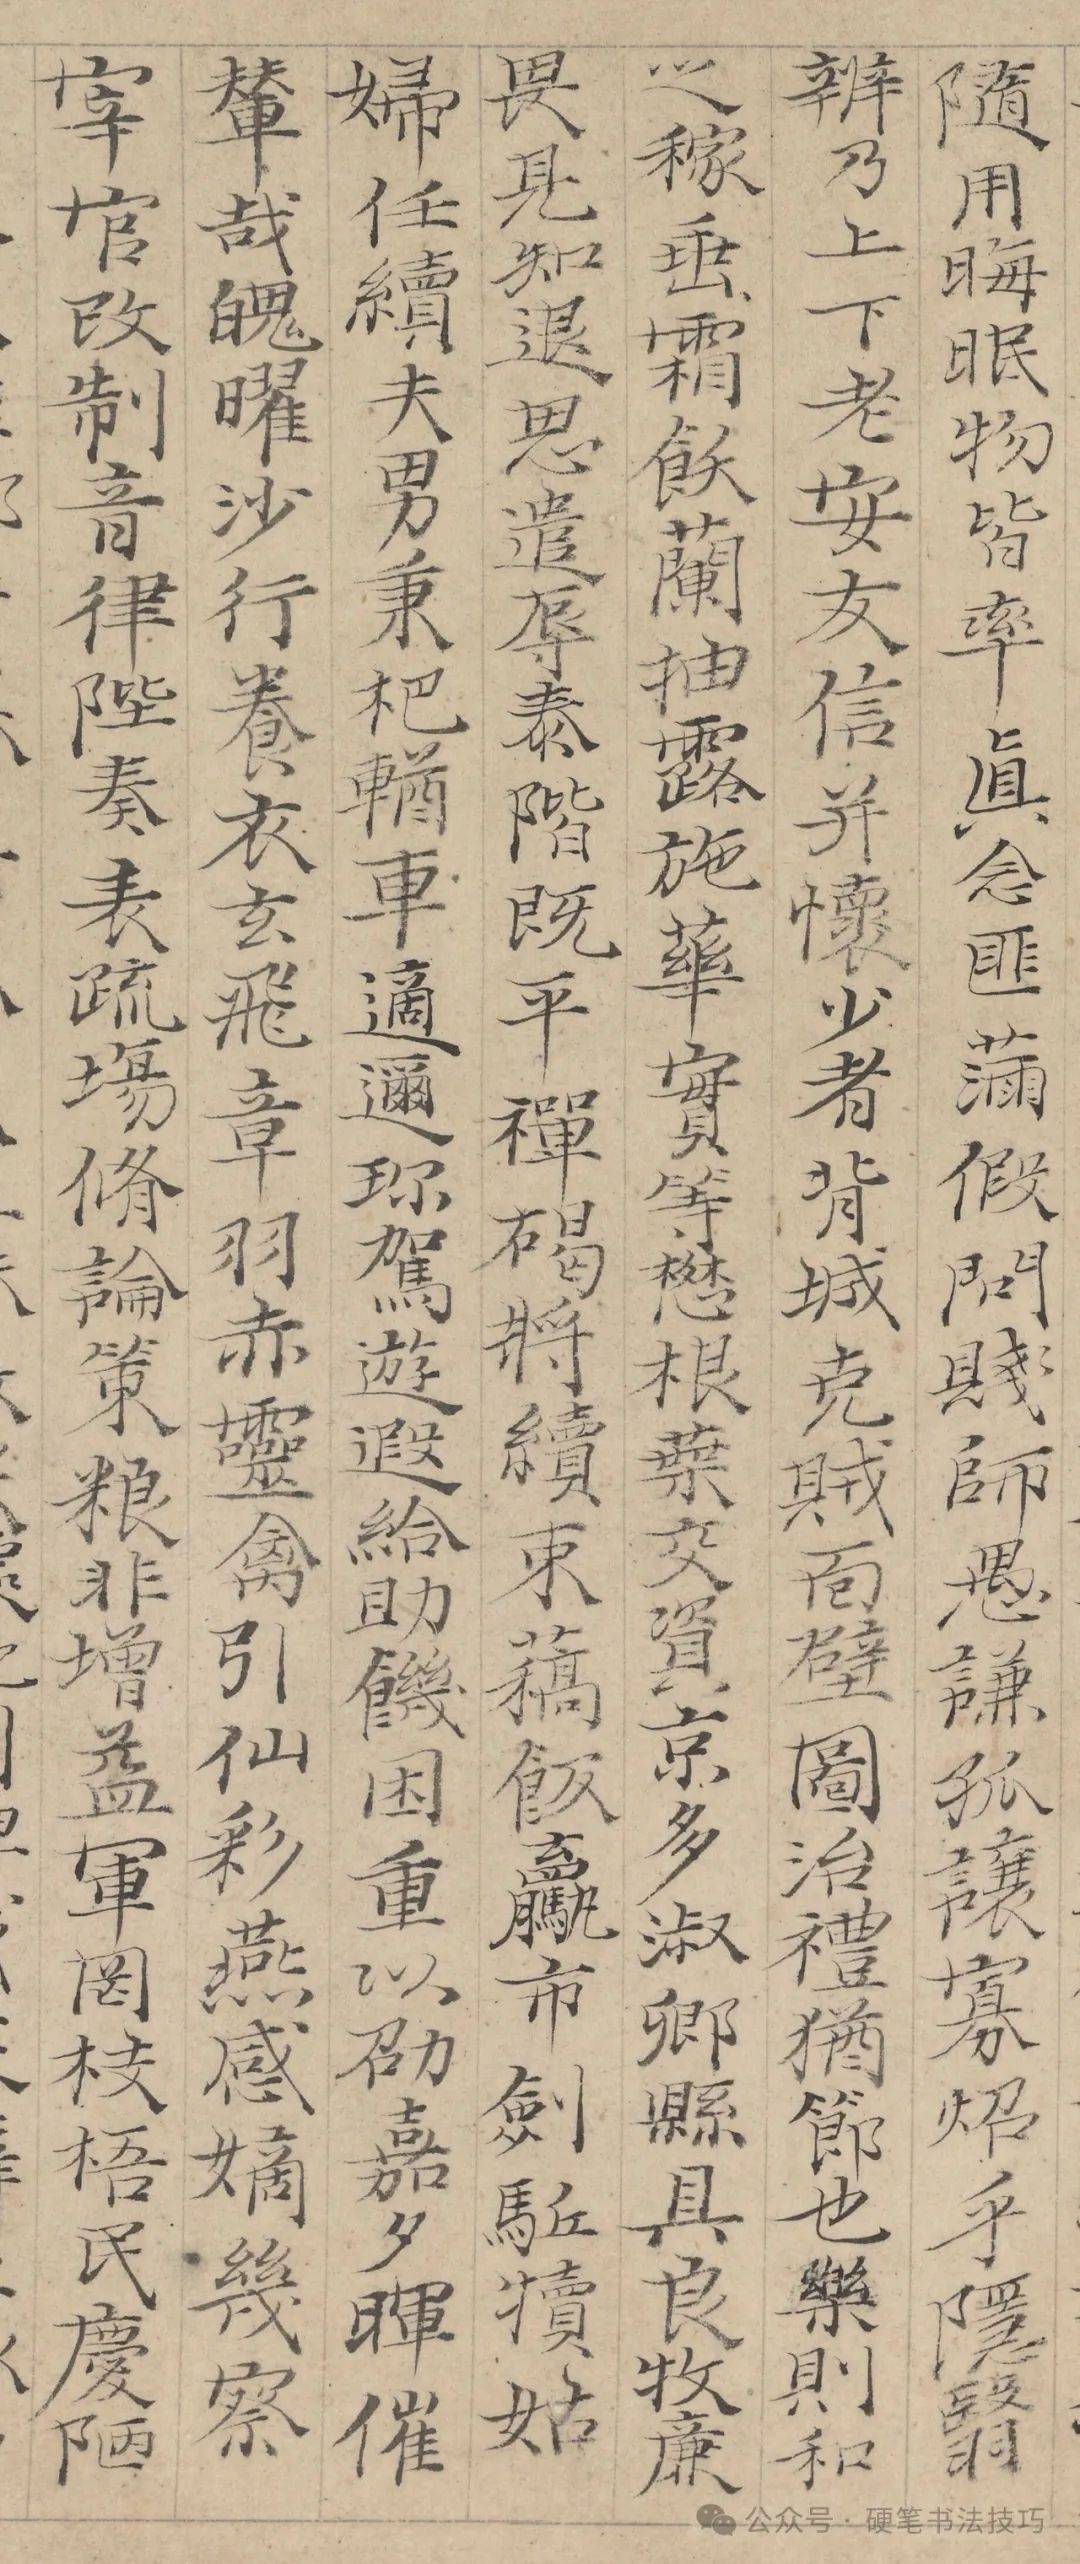 隨用晦眠物皆率真念匪滿假問賤師愚謙孤讓寡炤乎隱翳
辨乃上下老安友信并懷少者背城克賊面壁圖治禮猶節也樂則和
之稼垂霜飫蘭抽露施華實等懋根葉交資京多淑卿縣具良牧廉
畏見知退思遣辱泰階既平禪碣將續東藁飯驘市劍駈犢姑
婦任續夫男秉杷輶車適邇珎駕遊遐給助饑困重以劭嘉夕暉催
輦哉魄曜沙行養衣玄飛章羽赤靈禽引仙彩燕感嫡幾察
宰官改制音律陛奏表疏場脩論策粮非增益軍罔枝梧民慶陋
公众号·硬笔书法技巧